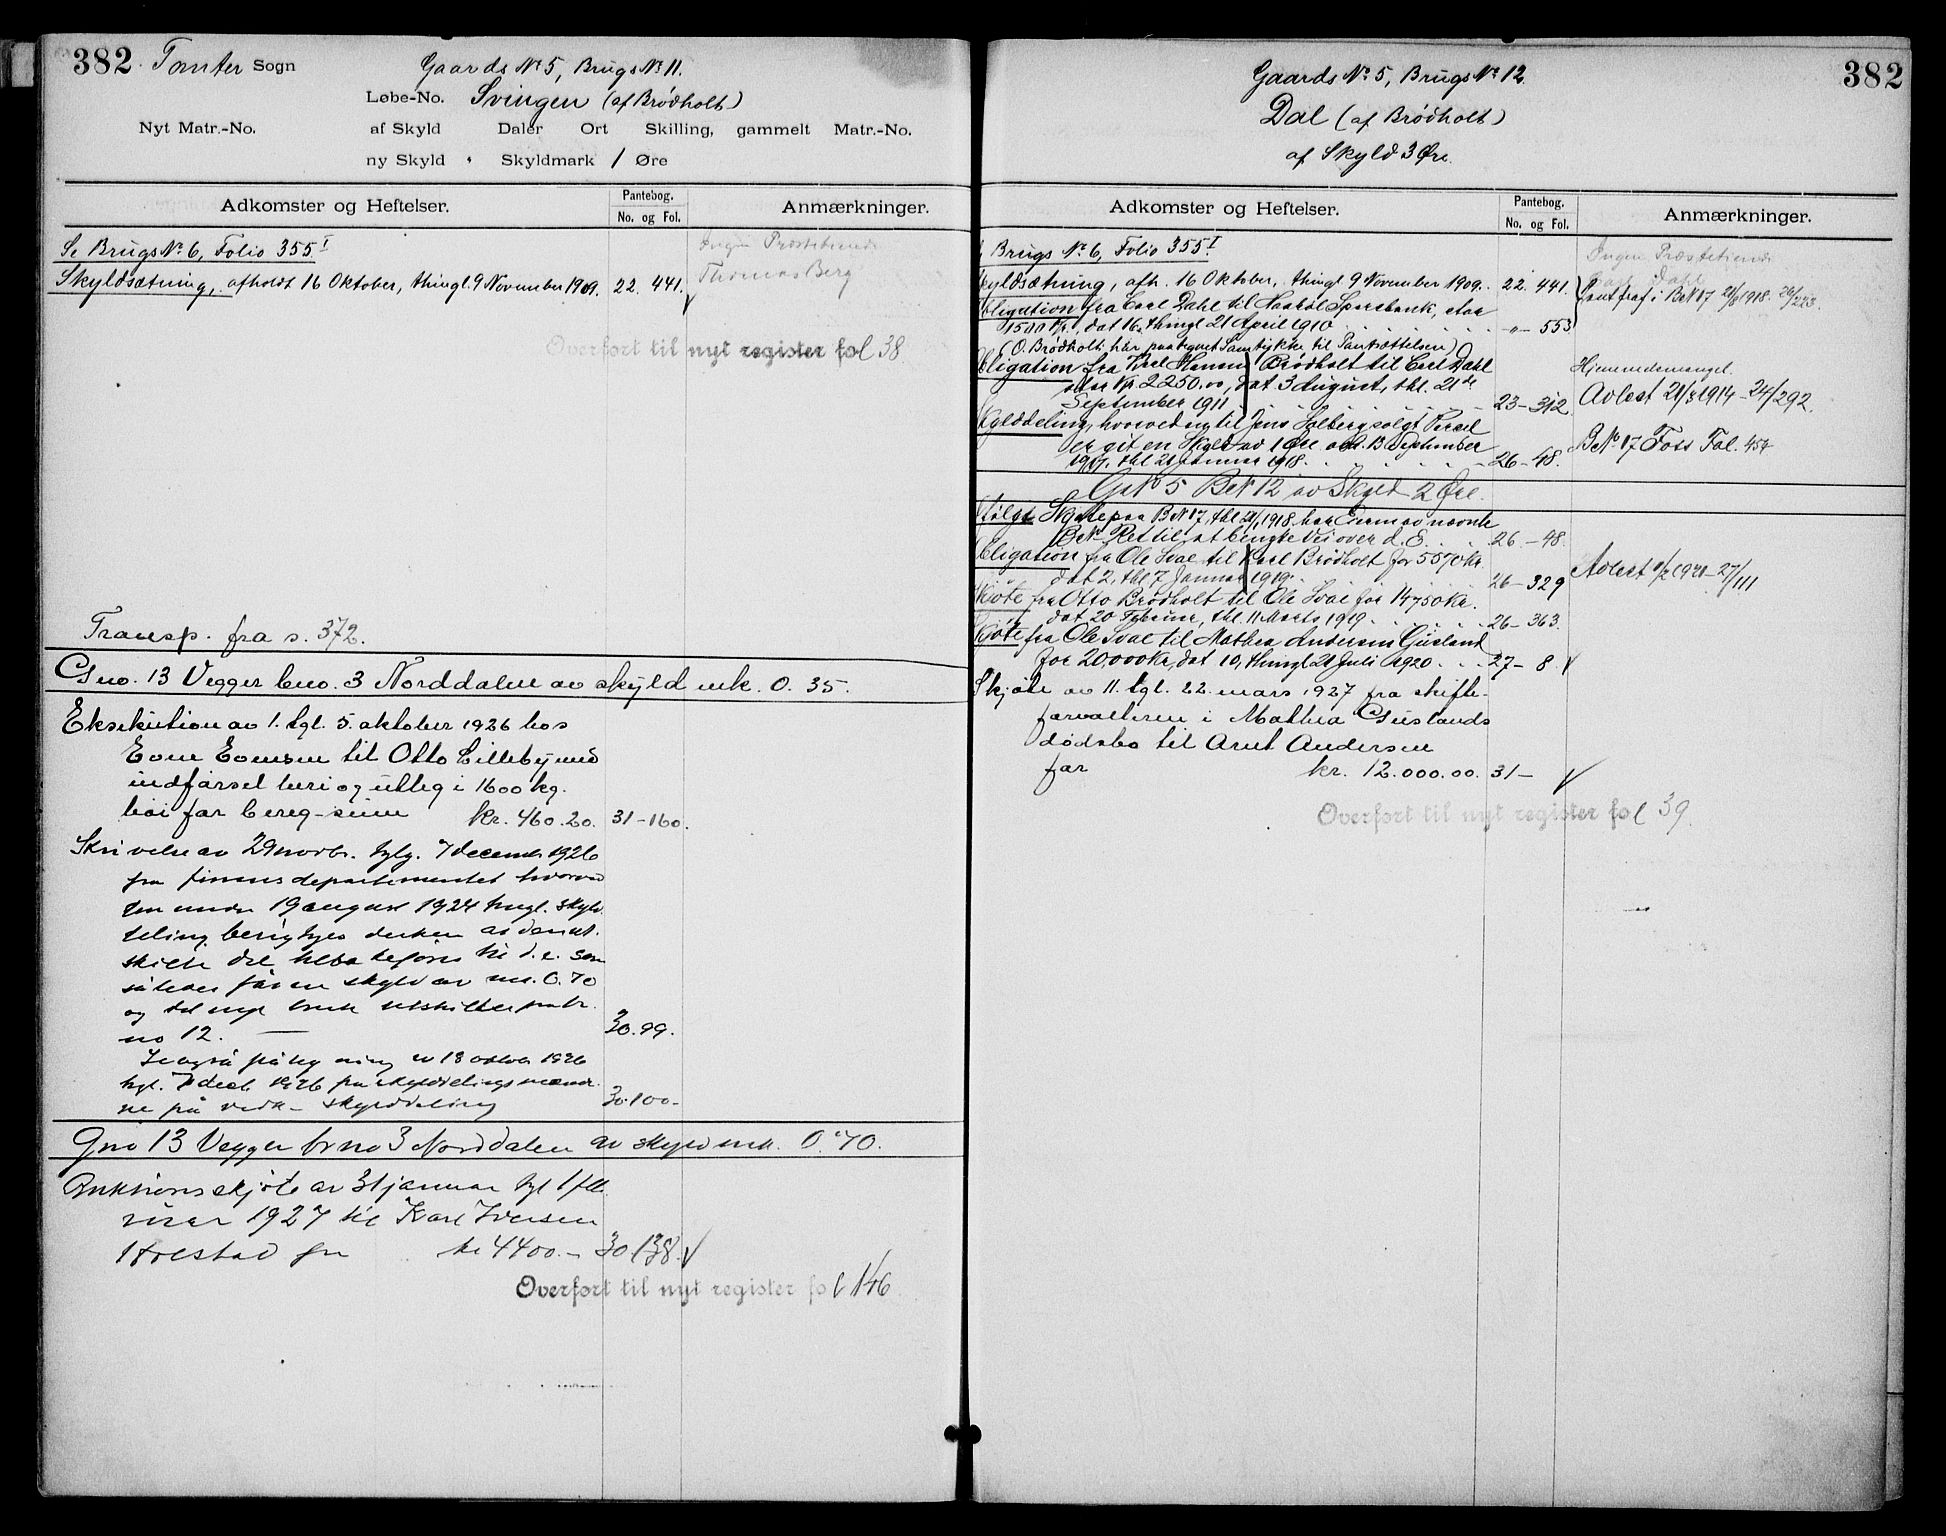 382 Tomter Sogn
Gaards No 5, Brugs No 11.
Løbe-No. Svingen (af Brødholt)
Nyt Matr.-No. af Skyld Daler Ort Skilling, gammelt Matr.-No.
ny Skyld Skyldmark 1 Øre
Adkomster og Heftelser. Pantebog. No. og Fol. Anmærkninger.
Se Brugs No 6, Folio 355 I
Ingen Præstetiende
Skyldsætning, afholdt 16 Oktober, thingl. 9 November 1909. 22. 441.
Thomas Berg
Overført til nyt register fol 38
Transp. fra s. 372.
Gno. 13 Vegger bno. 3 Norddalen av skyld mk. 0.35.
Eksekution av 1. tgl. 5. oktober 1926 hos
Even Evensen til Otto Lilleby med
indførsel heri og utlæg i 1600 kg.
høi for bereg. sum kr. 460.20. 31-160.
Skrivelse av 29 novbr. tglg. 7 decembr 1926
fra finansdepartementet hvorved
den under 19 august 1924 tingl. skyld
deling berigtiges derhen at den ut.
skilte del tilbakeføres til d. e. som
således får en skyld av mk. 0.70
og det nye bruk utskilles fra br.
no 12. 30.99.
Se også påtegning av 18 oktober 1926
tgl. 7 decb 1926 fra skylddelingsmænd-
ne på vedk- skylddeling 30.100-
Gno 13 Vegger brno 3 Norddalen av skyld mk. 0.70.
Auktionsskjøte av 31 januar tgl 1 feb
ruar 1927 til Karl Iversen
Holestad for kr 4400.- 30.138. ✓
Overført til nyt register fol 146
382
Gaards No 5, Brugs No 12.
Dal (af Brødholt)
af Skyld 3 Øre.
Adkomster og Heftelser. Pantebog. No. og Fol. Anmærkninger.
Brugs No 6, Folio 355 I
Ingen Præstetiende
kyldsætning, afh. 16 Oktober, thingl 9 November 1909. 22. 441.
Pantfraf. i BrN 17 21/1 1918. 26/223.
bligation fra Carl Dahl til Haabøl Sparebank, stor
1500 Kr., dat 16, thingl 21 April 1910 „- 553
(O. Brødholt har paategnet Samtykke til Pantsættelsen)
bligation fra Karl Hansen Brødholt til Carl Dahl
stor Kr 2250.00, dat 3 August, thl. 21de
September 1911 23-312.
Hjemmelsmangel.
Avlest 21/3 1914 - 24/292.
kylddeling, hvorved en til Jens Solberg solgt Parcel
er git en Skyld av 1 Øre afh. 13 September
1917, thl 21 Januar 1918. 26-48.
BNo 17 Foss Fol. 454
GrN 5 BrN 12 av Skyld 2 Øre.
følge Skjøte paa BrN 17, thl 21/1 1918 har Eieren av nævnte
BrN Ret til at benytte Vei over d. E. 26.-48.
bligation fra Ole Svae til Karl Brødholt for 5570 Kr.
dat 2, thl 7 Januar 1919. 26-329
Avlest 1/2 1921 - 27/111
kjøte fra Otto Brødholt til Ole Svae for 14750 Kr.
dat 20 Februar, thl. 11 Marts 1919 26-363.
kjøte fra Ole Svae til Mathea Andersen Gusland
for 20,000 Kr, dat 10, thingl 21 Juli 1920 27-8. ✓
Skjøte av 11. tgl. 22. mars 1927 fra skifte-
forvalteren i Mathea Guslands
dødsbo til Arnt Andersen
for kr. 12.000.00. 31- ✓
Overført til nyt register fol 39.